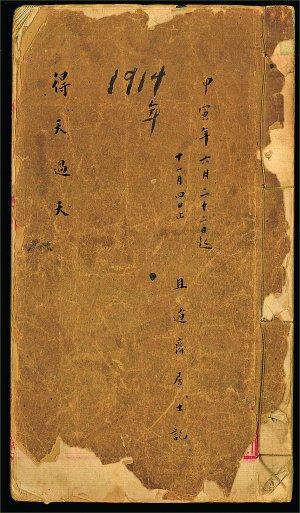 甲寅年六月二十二日起
十一月四日止
且遊齋居士記
1914
年
得天過天